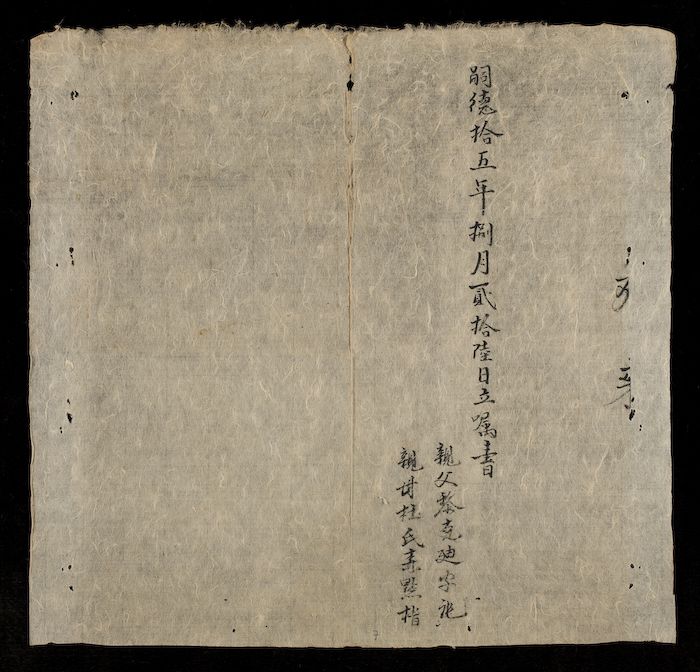 嗣德拾五年捌月貳拾陸日立囑書
親父黎克廸字記
親母杜氏素點指